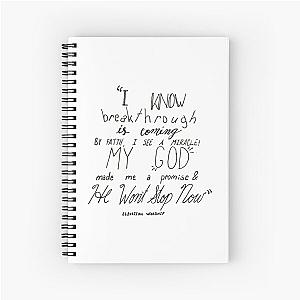 "I KNOW
breakthrough
is coming
BY FAITH, I SEE A MIRACLE!
MY GOD
made me a promise &
He Won't Stop Now"
ELEVATION WORSHIP